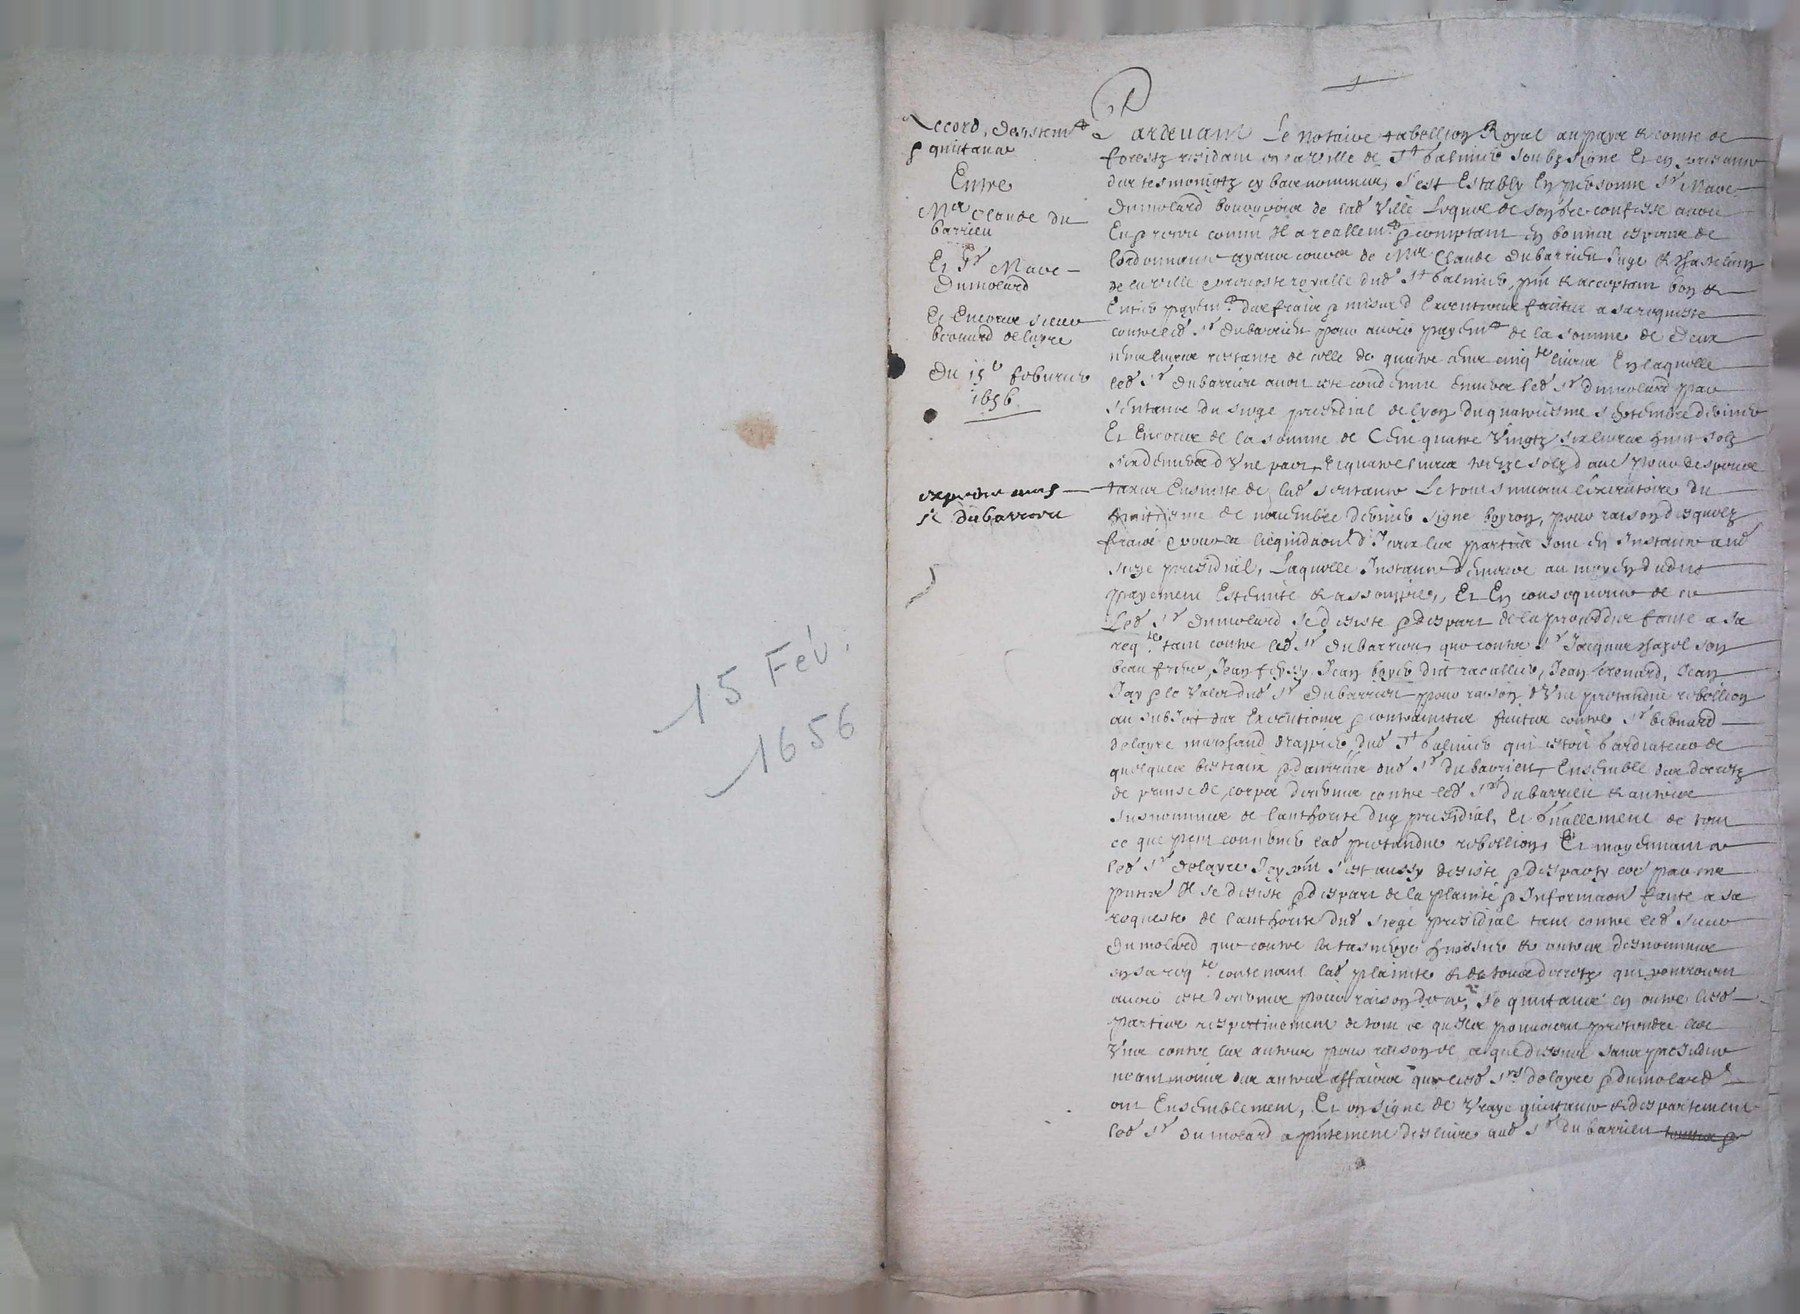 15 Fev.
1656
Accord, desistem^t
& quittance
Entre
M^re Claude du
barrieu
Et S^r Marc
Dumolard
Et Encores sieur
bernard delayre
Du 15^e febvrier
1656
expedié aud
s^r dubarrieu
Pardevant Le notaire tabellion Royal au pays & comté de
forestz residant en la ville de S^t balmier soubzsigné Et en presance
des tesmoingtz cy bas nommes, s'est Estably En personne S^r Marc
Dumolard bourgeois de lad^e Ville Lequel de son gré confesse avoir
Eu & receu comme Il a reallem^t & comptant en bonnes espesses de
l'ordonnance ayans cours de M^re Claude Dubarrieu Juge & chastelain
de la ville & prevosté royalle dud^t S^t balmier, pnt & acceptant bon &
Entier payem^t des frais & mises d'Executions faictes a sa requiste
contre led^t S^r Dubarrieu pour avoir payem^t de la somme de Deux
cens livres restante de celle de quatre cens cinq^te livres En laquelle
led^t S^r Dubarrieu avoit esté condempné envers led^t S^r dumolard par
sentence du siege presidial de lyon du quatriesme septembre dernier
Et Encores de la somme de Cent quatre Vingtz six livres huit solz
six deniers d'Une part, & quatre livres treize solz d'aue^e pour despens
taxes Ensuitte de lad^e sentence Le tout suivant l'executoire du
huitiesme de novembre dernier signé boyron, pour raison desquelz
frais & pour la liquidaon d'Iceux les parties sont en Instance aud^t
siege presidial, Laquelle Instance demeure au moyen dudict
payement Esteinte & assoupie, Et En consequence de ce
Led^t S^r Dumolard se desiste & despart de la procedure faicte a sa
req^te tant contre led^t S^r Dubarrieu, que contre S^r Jacques chazol son
beau frere, Jean fessy, Jean boyer dict racallier, Jean brenard, Jean
Jay & le Valet dud^t S^r Dubarrieu pour raison d'Une pretandue rebellion
au subject des Executions & contrainctes faictes contre S^r bernard
delayre marchand drappier dud^t S^t balmier qui estoit gardiateur de
quelques bestiaux & danrées dud^t S^r dubarrieu, Ensemble des decretz
de prinse de corps decernes contre led^t S^r Dubarrieu & autres
susnommes de l'authorité dud^t presidial, Et finallement de tout
ce que peut concerner lad^e pretandue rebellion, Et moyennant ce
led^t S^r delayre Icy pnt s'est aussy desisté & desparty co^e par ces
pntes Il se desiste & despart de la plainte & Informaon faicte a sa
requeste de l'authorité dud^t siege presidial tant contre led^t sieur
Dumolard que contre huissier & autres desnommes
en sa req^te contenant lad^e plainte & de tous decretz qui pourroient
avoir esté decernes pour raison de ce, se quittans en outre lesd^es
parties respectivement de tout ce qu'elles pourroient pretendre les
Unes contre les autres pour raison de ce que dessus sans prejudice
neantmoins des autres affaires que lesd^t S^rs delayre & dumolard
ont Ensemblement, Et en signe de Vraye quittance & despartement
led^t S^r Dumolard a pntement deslivré aud^t S^r dubarrieu